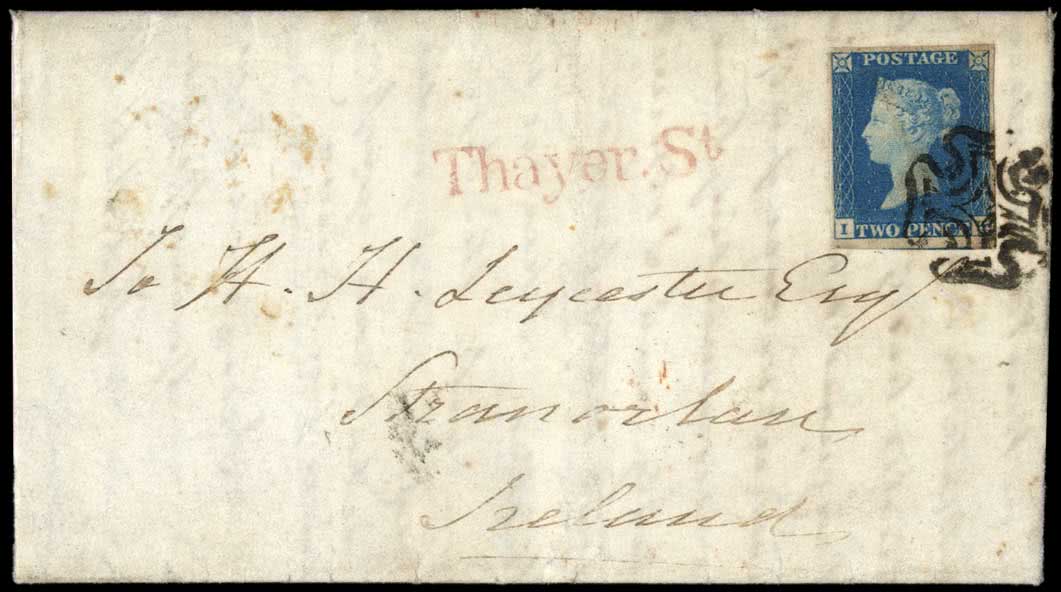 POSTAGE
Thayer. St
I TWO PENCE
To H. H. Leycester Esqr
Stranorlan
Ireland